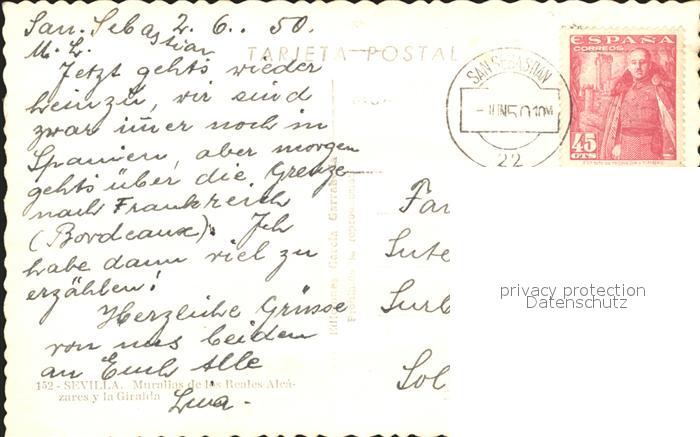 San. Sebastian 2. 6.. 50.
M. L.
TARJETA POSTAL
Jetzt gehts wieder
heinzu, wir sind
zwar im̄er noch in
Spanien, aber morgen
gehts über die Grenze
nach Frankreich
(Bordeaux). Ich
habe dann viel zu
erzählen!
Herzliche Grüsse
von uns beiden
an Euch Alle
152 - SEVILLA. Murallas de los Reales Alcá-
zares y la Giralda
Ediciones García Garrabella
Prohibida la reproducción
SAN SEBASTIAN
JUN 50 10M
22
ESPAÑA
CORREOS
45
CTS
Fa
Sute
Surb
Sol
privacy protection
Datenschutz